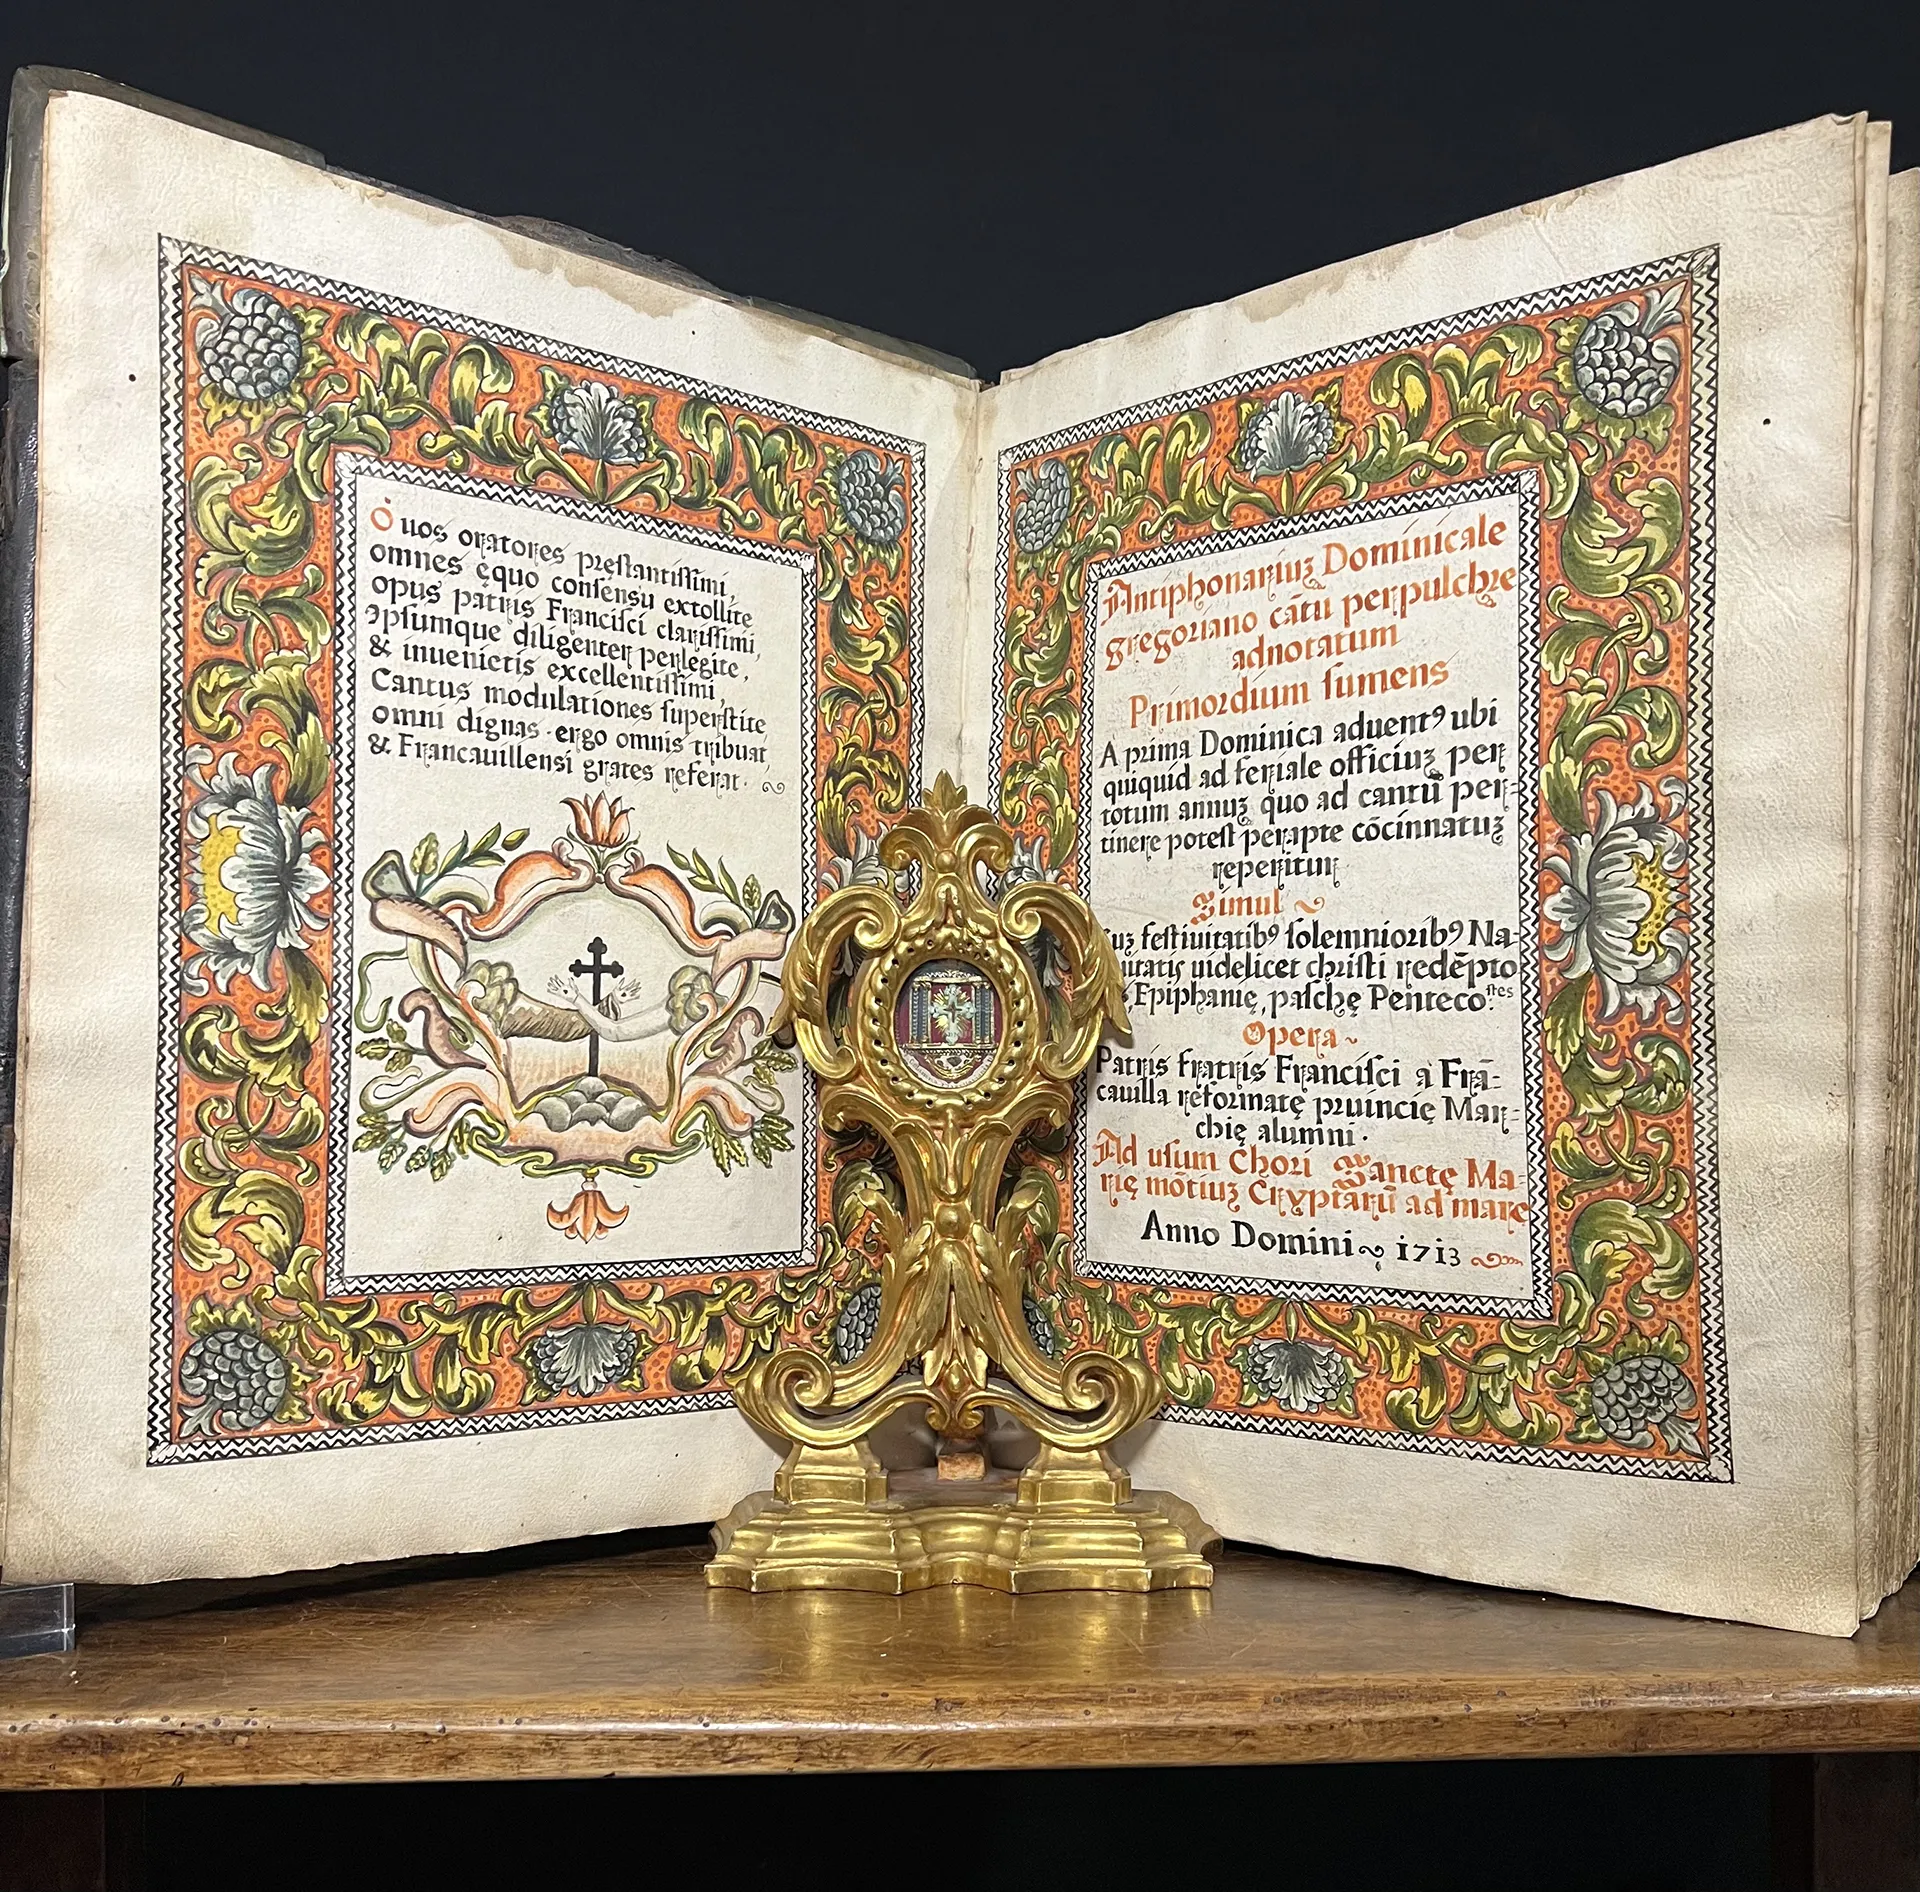 O uos oratores pręstantissimi,
omnes ęquo consensu extollite
opus patris Francisci clarissimi,
Ipsumque diligenter perlegite,
& inuenietis excellentissimi,
Cantus modulationes superstite
omni dignas. ergo omnis tribuat,
& Francauillensi grates referat.
Antiphonariuʒ Dominicale
gregoriano cãtu perpulchre
adnotatum
Primordium sumens
A prima Dominica aduentꝰ ubi
quiquid ad feriale officiuʒ per
totum annuʒ quo ad cantũ per=
tinere potest perapte cõcinnatuʒ
reperitur
Simul
cuʒ festiuitatibꝰ solemnioribꝰ Na=
uitatis uidelicet christi redẽpto
Epiphanię, paschę Penteco.stes
Opera
Patris fratris Francisci à Frã=
cauilla reformatę prouincię Mar=
chię alumni.
Ad usum Chori Sanctę Ma=
rię mõtiuʒ Cryptãrũ ad mare
Anno Domini 1713